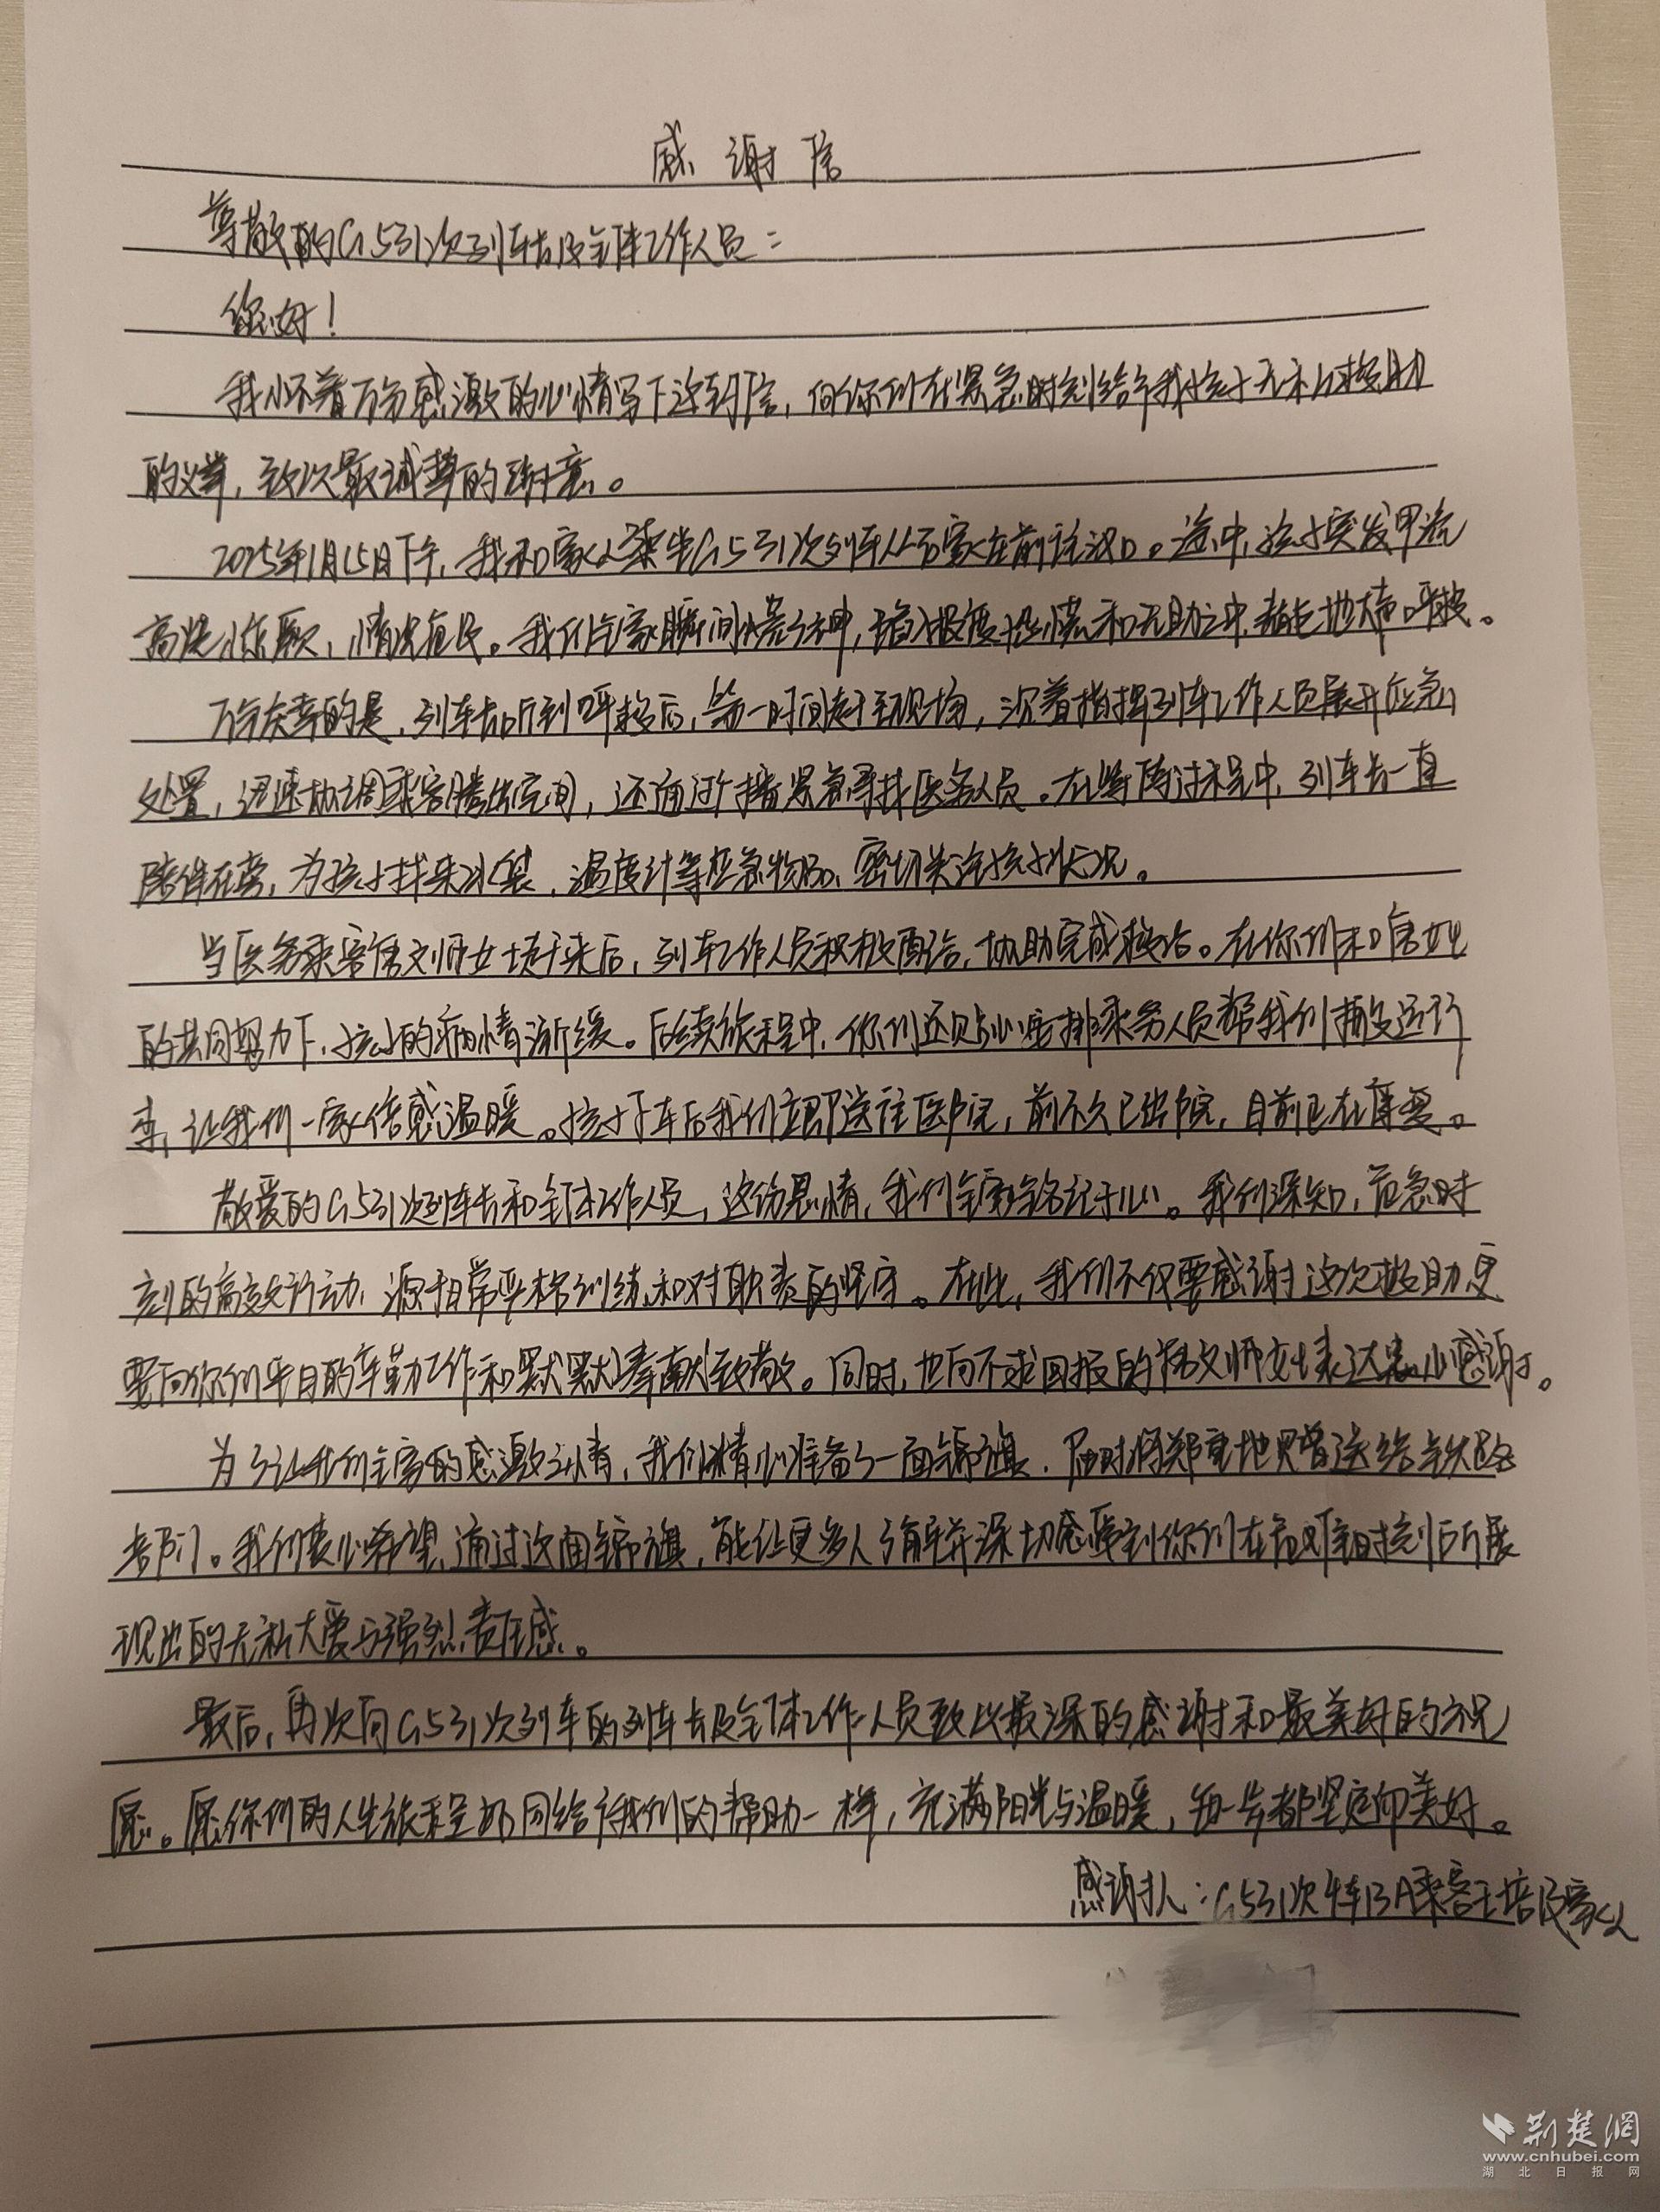 感谢信
尊敬的G531次列车长及全体工作人员：
您好！
我怀着万分感激的心情写下这封信，向你们在紧急时刻给予我孩子无私救助
的义举，致以最诚挚的谢意。
2025年1月15日下午，我和家人乘坐G531次列车从石家庄前往汉口。途中，孩子突发甲流
高烧惊厥，情况危急。我们全家瞬间慌了神，陷入极度恐慌和无助之中，着急地大声呼救。
万分庆幸的是，列车长听到呼救后，第一时间赶至现场，沉着指挥列车工作人员展开应急
处置，迅速协调乘客腾出空间，还通过广播紧急寻找医务人员。在等待过程中，列车长一直
陪伴在旁，为孩子找来冰袋，温度计等应急物品，密切关注孩子状况。
当医务乘客 文师女士赶来后，列车工作人员积极配合，协助完成救治。在你们和 女士
的共同努力下，孩子的病情渐缓。后续旅程中，你们还贴心安排乘务人员帮我们搬运行
李，让我们一家人倍感温暖。孩子下车后我们立即送往医院，前不久已出院，目前正在康复。
敬爱的G531次列车长和全体工作人员，这份恩情，我们全家铭记于心。我们深知，危急时
刻的高效行动，源于日常严格训练和对职责的坚守。在此，我们不仅要感谢这次救助更
要向你们平日的辛勤工作和默默奉献致敬。同时，也向不求回报的 文师女士表达衷心感谢。
为了让我们全家的感激之情，我们精心准备了一面锦旗，届时将郑重地赠送给铁路
部门。我们衷心希望，通过这面锦旗，能让更多人了解并深切感受到你们在危难时刻所展
现出的无私大爱与强烈责任感。
最后，再次向G531次列车的列车长及全体工作人员致以最深的感谢和最美好的祝
愿。愿你们的人生旅程如同给予我们的帮助一样，充满阳光与温暖，每一步都坚定仰美好。
感谢人：G531次4车13A乘客王培及家人
荆楚網
www.cnhubei.com
湖北日报网